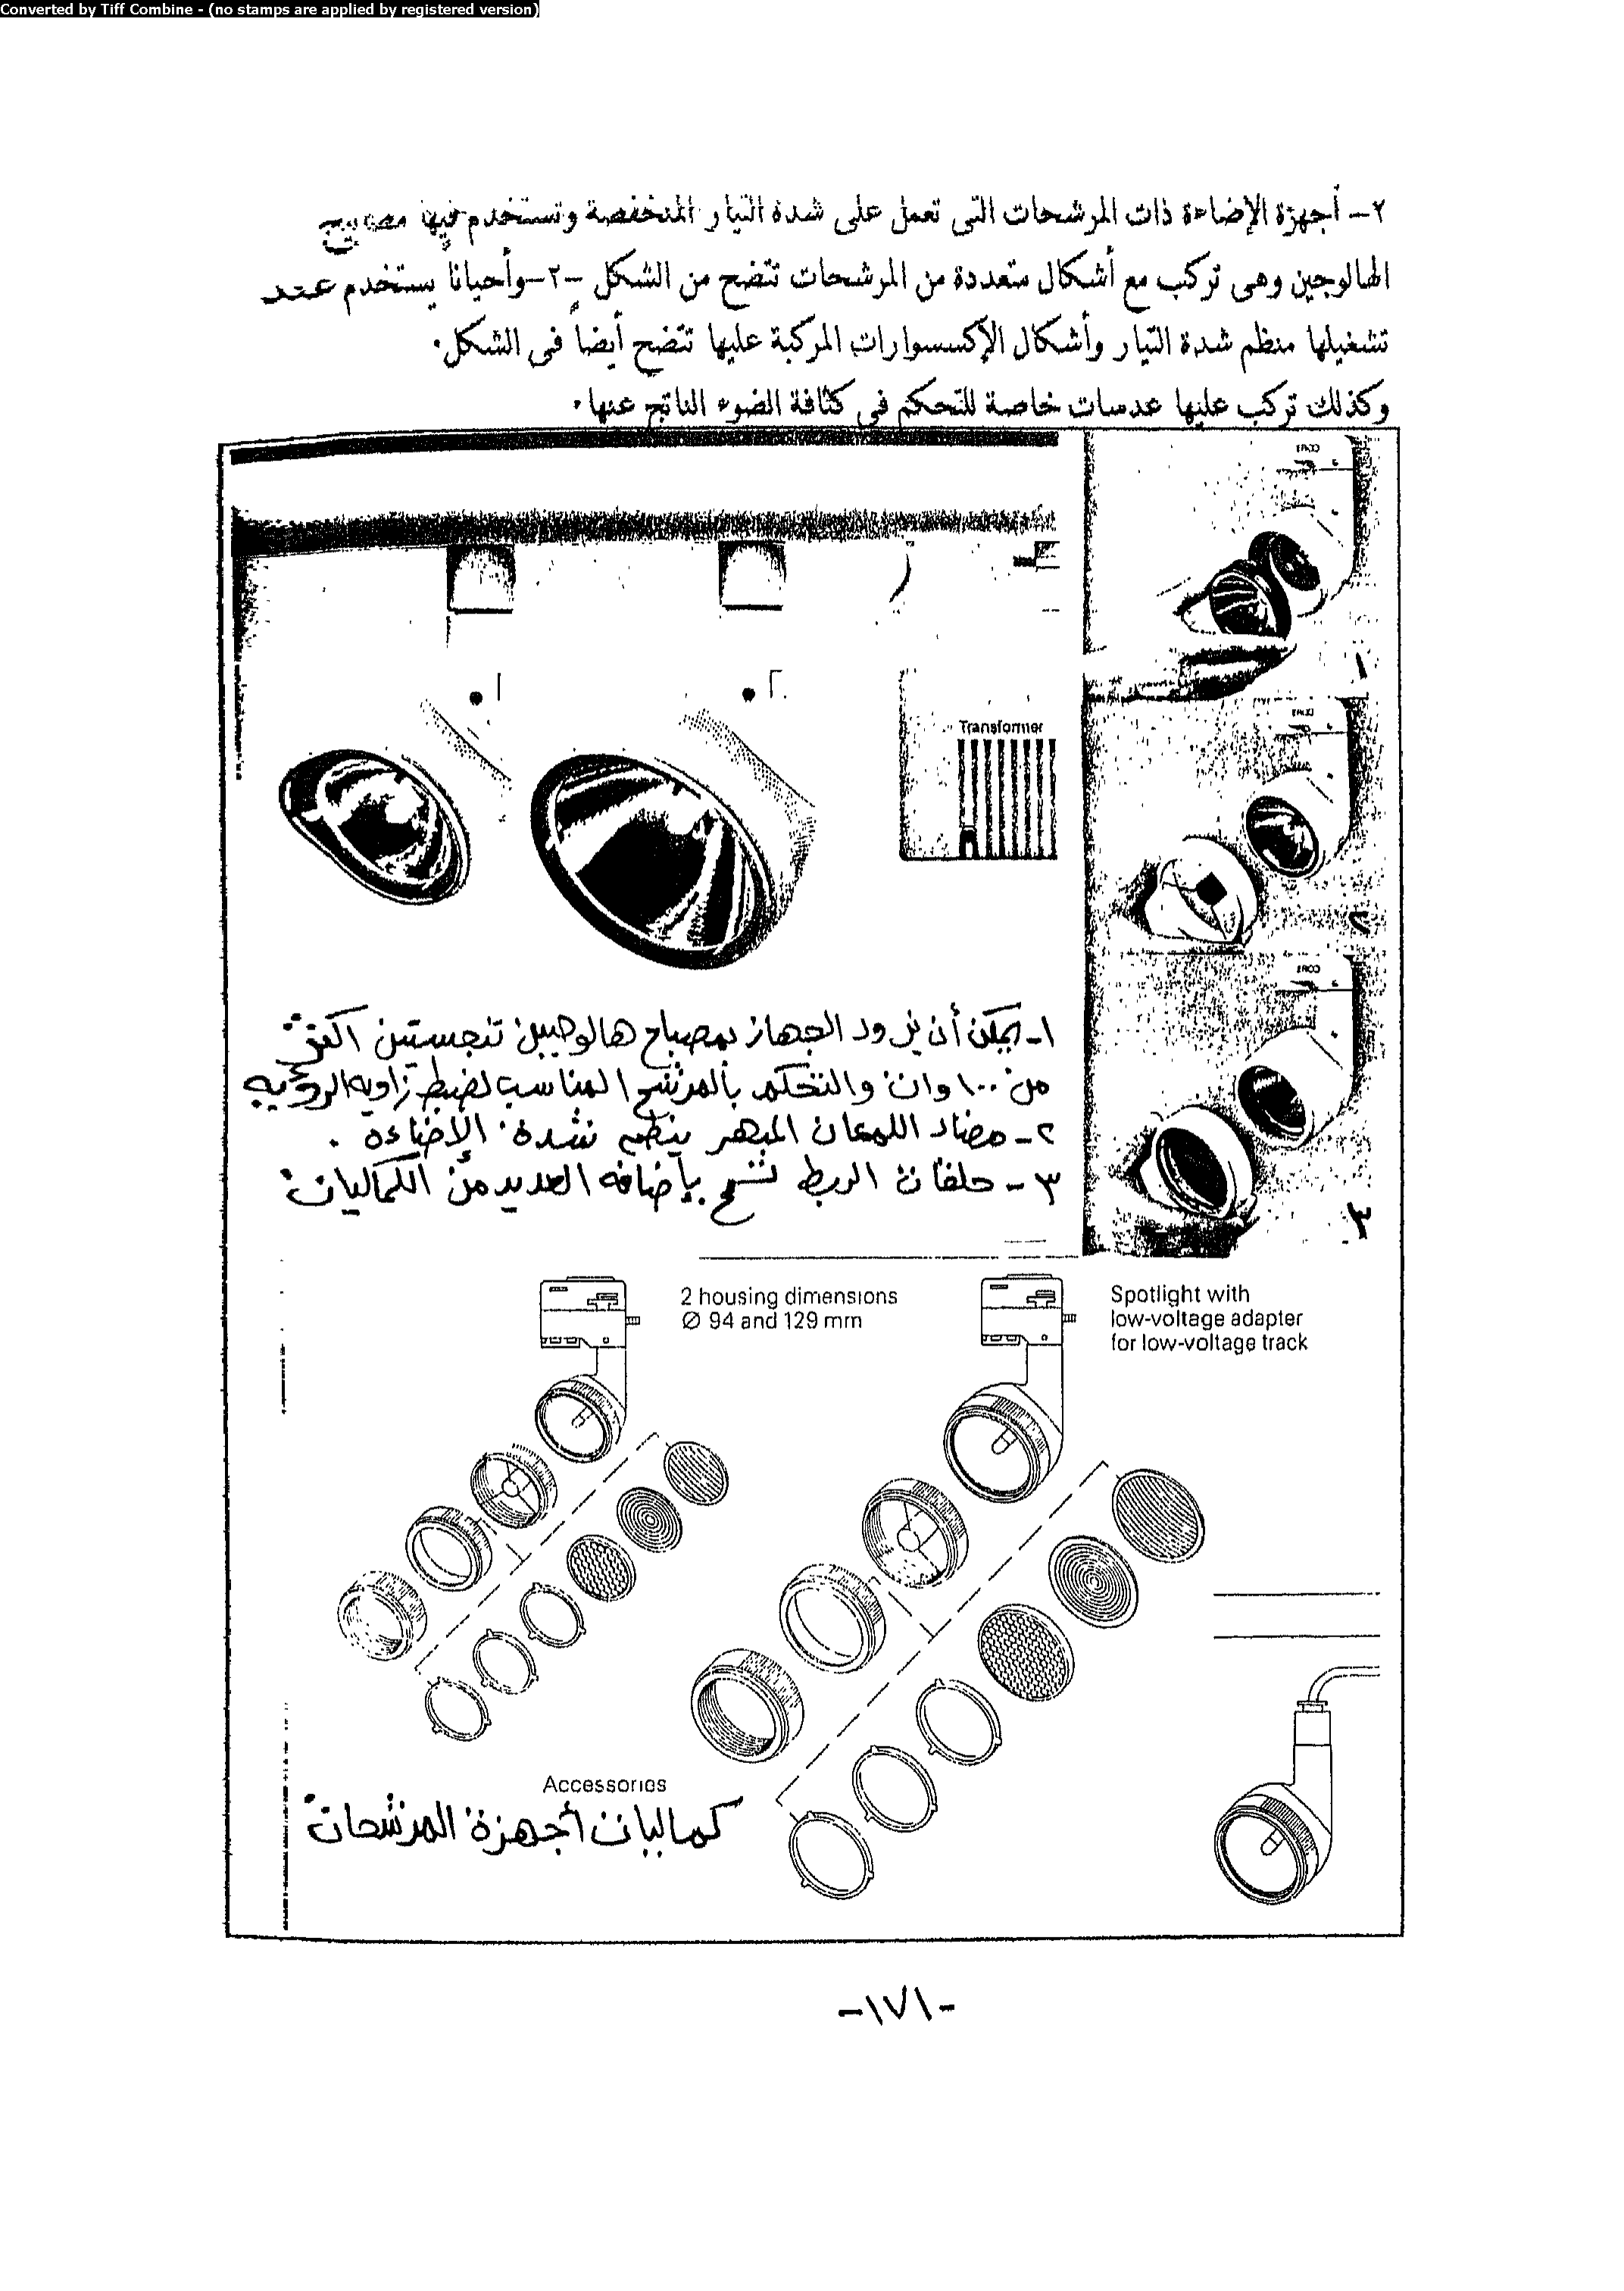 Converted by Tiff Combine - (no stamps are applied by registered version)
٢- أجهزة الإضاءة ذات المرشحات التى تعمل على شدة التيار المنخفضة وتستخدم فيها مصابيح
الهالوجين وهى تركب مع أشكال متعددة من المرشحات تتضح من الشكل -٢- وأحياناً يستخدم عند
تشغيلها منظم شدة التيار وأشكال الإكسسوارات المركبة عليها تتضح أيضاً فى الشكل.
وكذلك تركب عليها عدسات خاصة للتحكم فى كثافة الضوء الناتج عنها.
١
٢
Transformer
١
٢
٣
١- يمكن أن يزود الجهاز بمصباح هالوجين تنجستين أكثر
من ١٠٠ وات والتحكم بالمرشح المناسب لضبط زاويه الرؤيه
٢- مضاد اللمعان المبهر ينظم شدة الإضاءة .
٣- حلقات الربط تسمح بإضافه العديد من الكماليات
2 housing dimensions
Ø 94 and 129 mm
Spotlight with
low-voltage adapter
for low-voltage track
Accessories
كماليات أجهزة المرشحات
-١٧١-